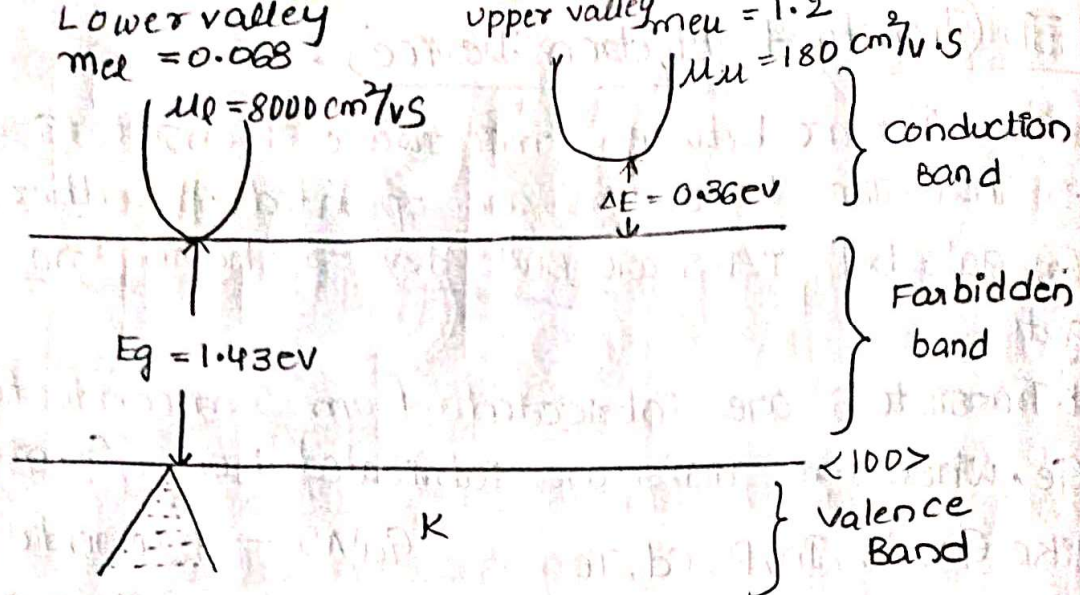 Lower valley
mel = 0.068
μl = 8000 cm²/vS
upper valley
meu = 1.2
μu = 180 cm²/v.S
ΔE = 0.36ev
conduction
Band
Eg = 1.43ev
Farbidden
band
<100>
K
valence
Band